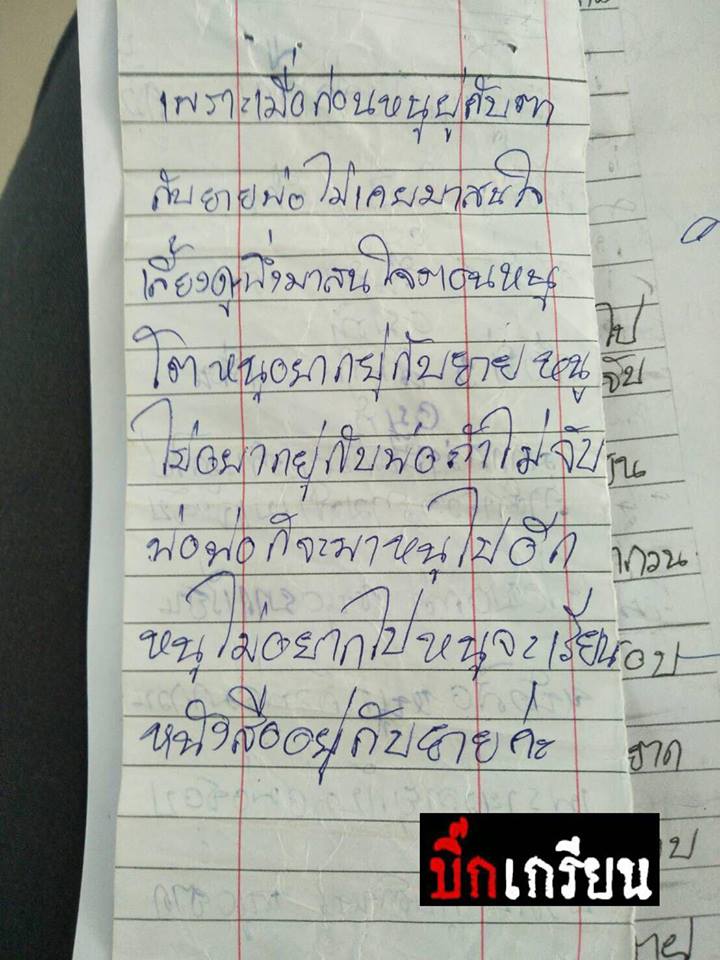 เพราะเมื่อก่อนหนูยู่กับตา
กับยายพ่อไม่เคยมาสนใจ
เลี้ยงดูพึ่งมาสนใจตอนหนู
โตหนูอยากยู่กับยายหนู
ไม่อยากยู่กับพ่อถ้าไม่จับ
พ่อพ่อก็จะมาหนูไปอีก
หนูไม่อยากไปหนูจะเรียน
หนังสืออยู่กับยายค่ะ
ไป
จับ
บิ๊กเกรียน